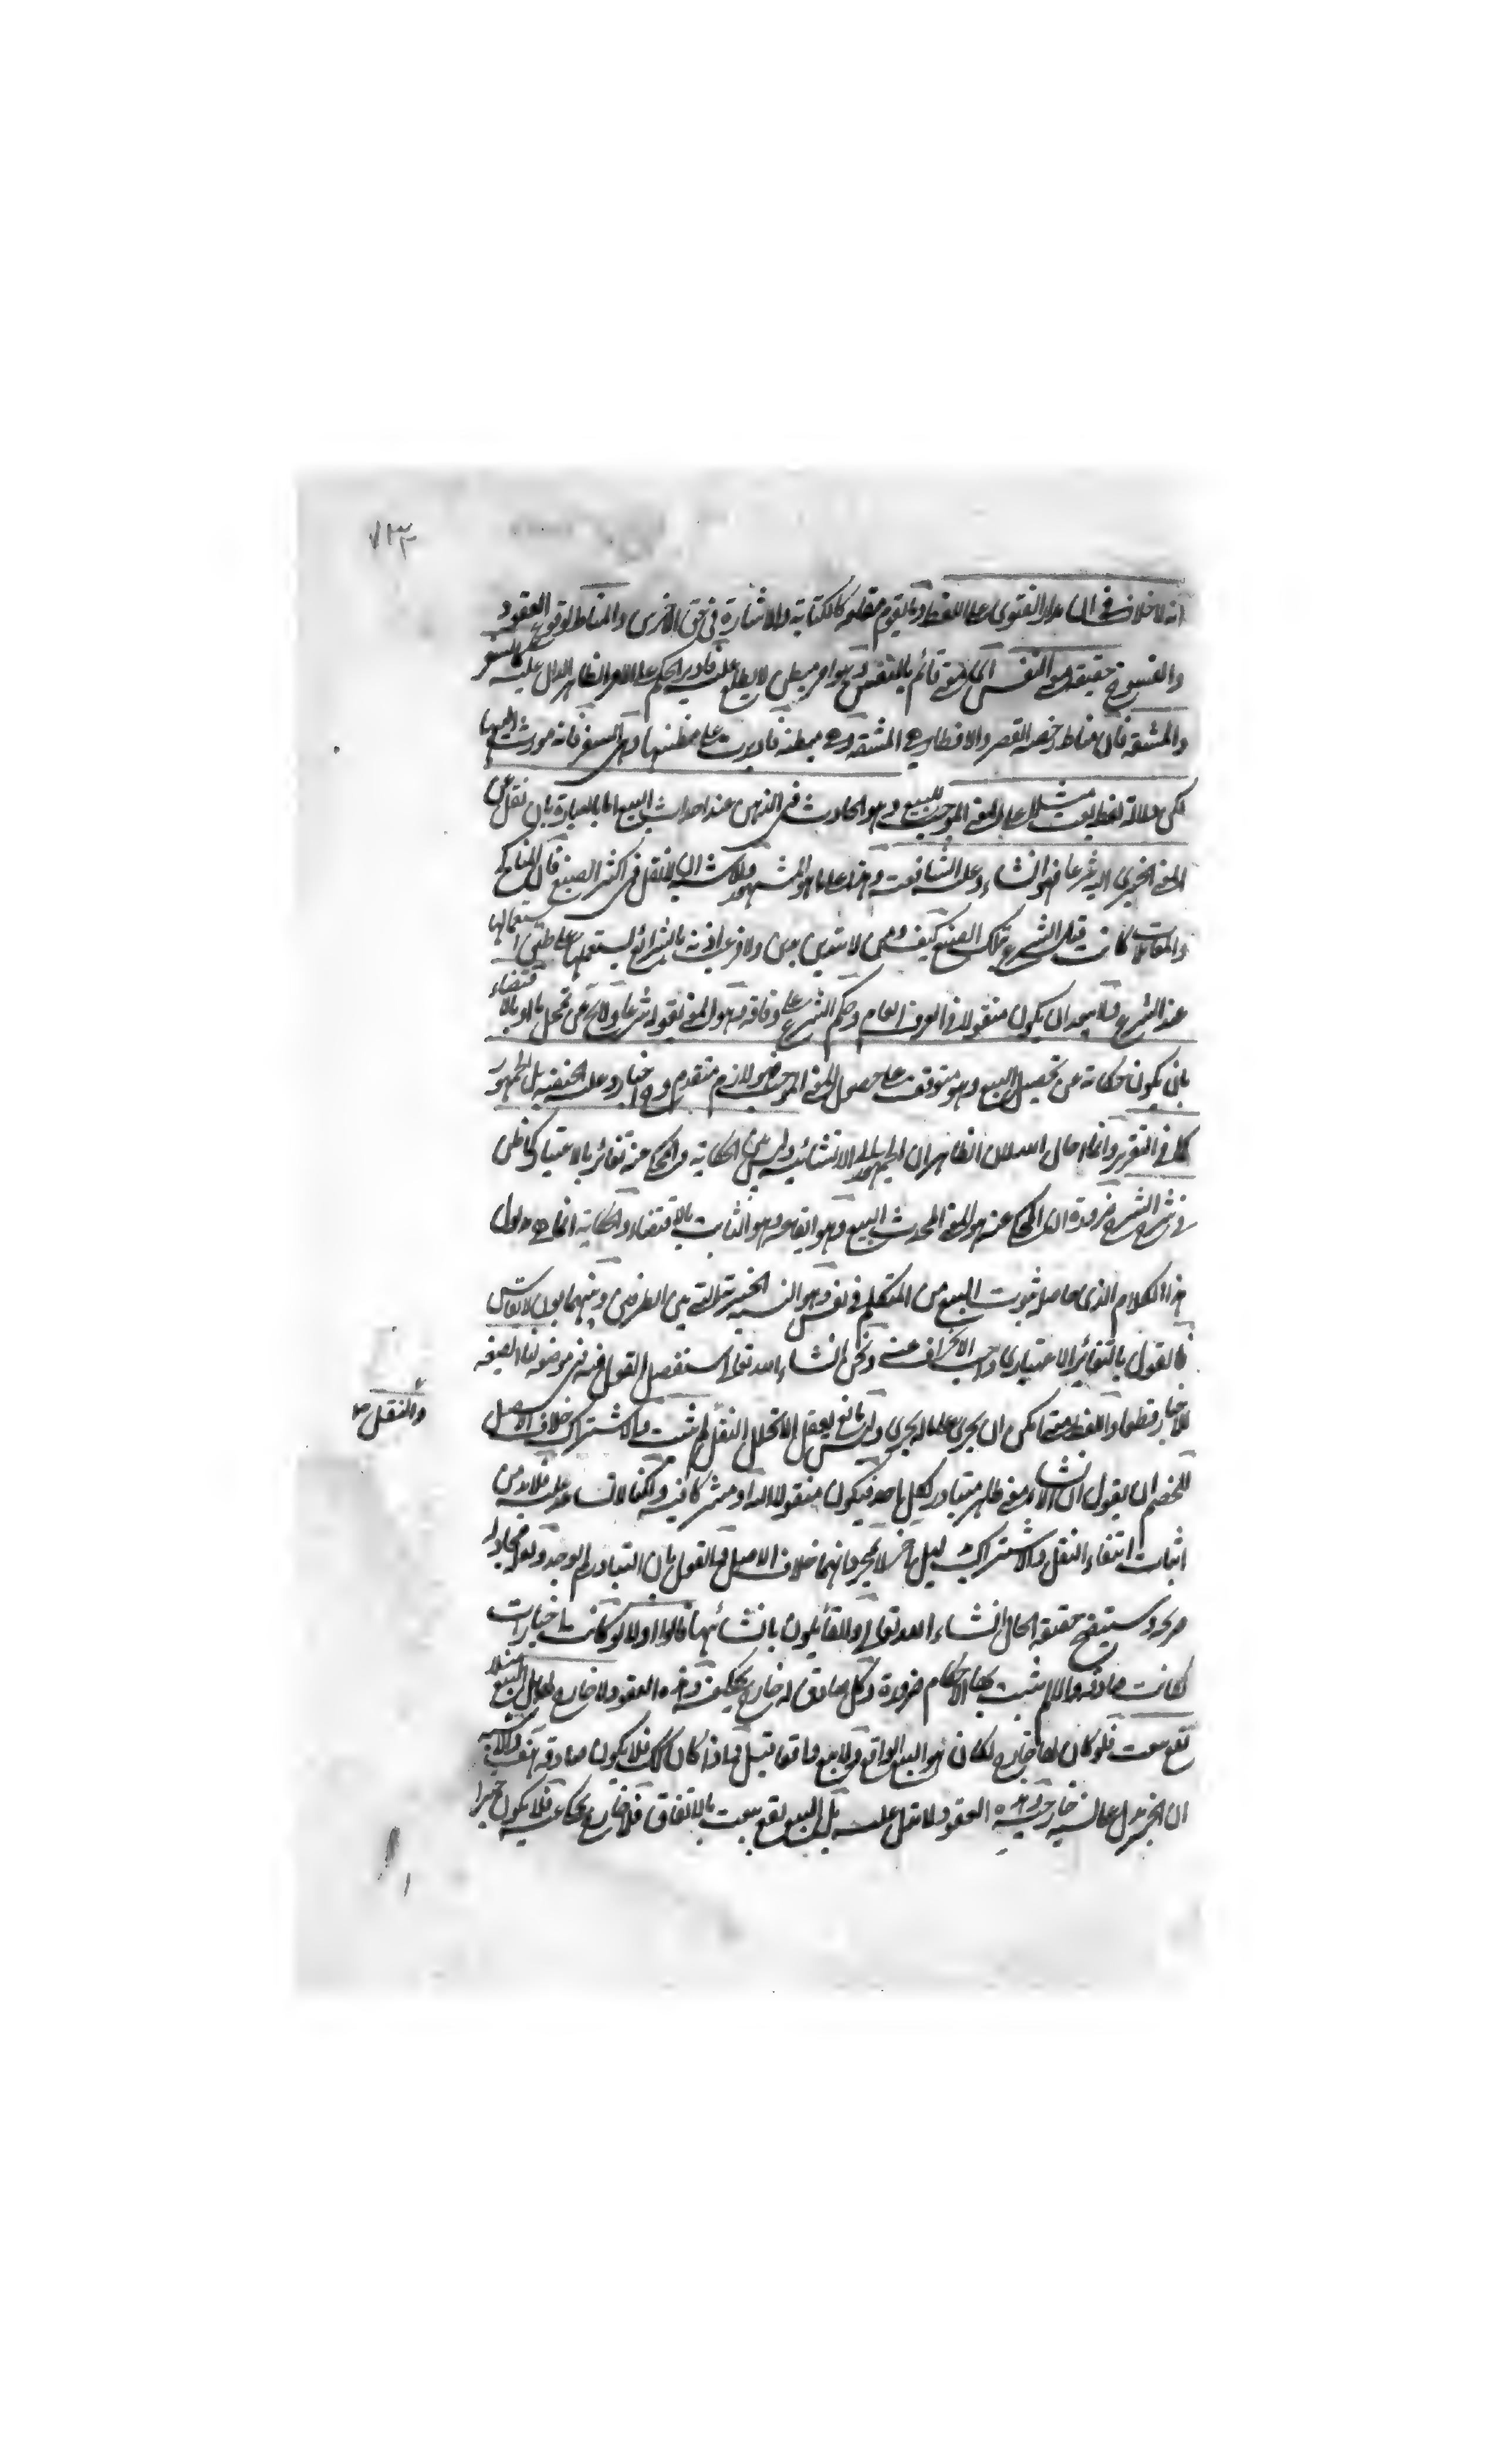 ١٣٣
انه لا خلاف في ان مدار الفتوى على اللفظ وما يقوم مقامه كالكتابة والاشارة في حق الاخرس والمناط لوقوع العقود
والفسوخ حقيقة هو النفس معنى قائم بالنفس وهو امر مبطن لا يطلع عليه فادير الحكم على الامر الظاهر الدال عليه كالسفر
والمشقة فان مناط رخصة القصر والافطار هي المشقة وهي مبطنة فاديرت على مظنتها وهي السفر فانه مورث لها
لكن دلالة لفظ بعت مثلا على المعنى الموجب للبيع وهو الحادث في الذهن عند احداث البيع اما بالعبارة بان نقل عن
المعنى الخبري اليه شرعا فهو انشاء وعليه الشافعية وهذا على ما هو المشهور والاشبه ان لا نقل في اكثر الصيغ فان المناكح
والمعاملات كانت قبل الشرع بتلك الصيغ كيف ومن لا يتدين بدين ولا فرع اذنه بالشرائع يستعملها على طبق استعمالها
عند الشرع فلا يبعد ان يكون منقولا في العرف العام وحكم الشرع على وفاقه وهو المعنى بقوله شرعا ولا يخ عن تمحل ما او بالاقتضاء
بان يكون حكاية عن تحصيل البيع وهو متوقف على حصول المعنى الموجب فهو لازم متقدم فهو اخبار وعليه الحنفية بل الجمهور
كذا في التقرير وانما حال لان الظاهر ان الجمهور على الانشائية وليس بين الحكاية والمحكي عنه تغائر بالاعتبار كما ظن
في شرح الشرح ضرورة ان المحكي عنه هو المعنى المحدث للبيع وهو ايقاعه وهو الثابت بالاقتضاء والحكاية انما هي مدلول
هذا الكلام الذي حاصل ثبوت البيع من المتكلم في نفسه وهو النسبة الخبرية التي بين الطرفين وبينهما بون لا يقاس
فالقول بالتغائر الاعتباري واجب الانحراف عنه ونحن ان شاء الله تعالى سنفصل القول فيه لنا موضوع الصيغة
للاخبار قطعا واللفظ متى امكن ان يجري على ما له يجري وليس مانع يعقل الا تخلل النقل ولم يثبت والاشتراك خلاف الاصل
والنقل
للخصم ان يقول ان الانشاء معنى ظاهر متبادر لكل احد فيكون منقولا اليه او مشتركا فيه ولكنا لا نساعد عليه فلا بد من
اثبات انتفاء النقل والاشتراك بدليل اخر لا بمجرد انهما خلاف الاصل والقول بان التبادر لم يوجد ولو مجادلة
مجرد وستتضح حقيقة الحال ان شاء الله تعالى والقائلون بانشائيتها قالوا اولا لو كانت اخبارات
لكانت صادقة والا لم يثبت بها الاحكام ضرورة وكل صادق له خارج يحكيه وهذه العقود لا خارج لها بل البيع مثلا
يقع ببعت فلو كان لها خارج لكان هو البيع الواقع ولا بيع واقعا قبل واذا كان كذلك فلا يكون صادقة
ان الخبر يدل على نسبة خارجية وهذه العقود لا تدل عليه بل البيع يقع ببعت بالاتفاق فلا خارج يحكى عنه فلا يكون خبرا